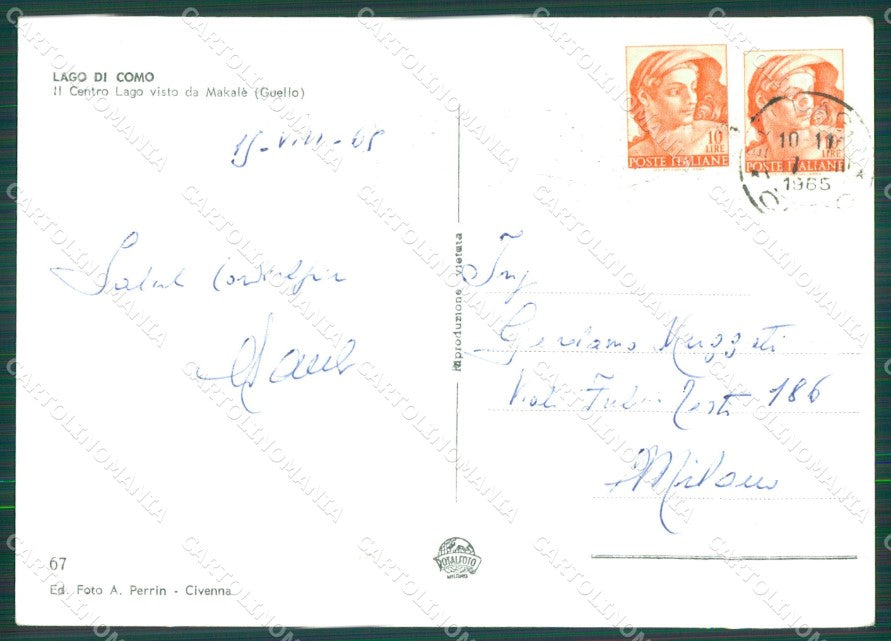 LAGO DI COMO
Il Centro Lago visto da Makalè (Guello)
15-VIII-65
Saluti Cordialissimi
10
LIRE
POSTE ITALIANE
LIRE
POSTE ITALIANE
10-11
1965
Riproduzione vietata
Ing
Giordano
Viale Fulvio Testi 186
Milano
67
Ed. Foto A. Perrin - Civenna
ROTALFOTO
MILANO
CARTOLINOMANIA